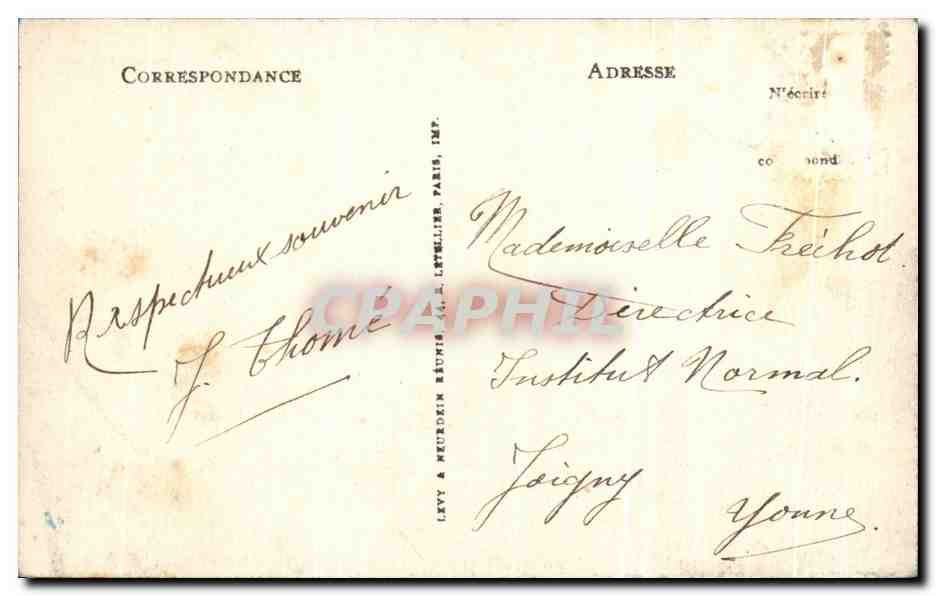 CORRESPONDANCE
Respectueux souvenir
J. Thomé
LEVY & NEURDEIN RÉUNIS, 44, R. LETELLIER, PARIS, IMP.
ADRESSE
N'écrire
Mademoiselle Fréchot.
Directrice
Institut Normal.
Joigny
Yonne.
CPAPHIL